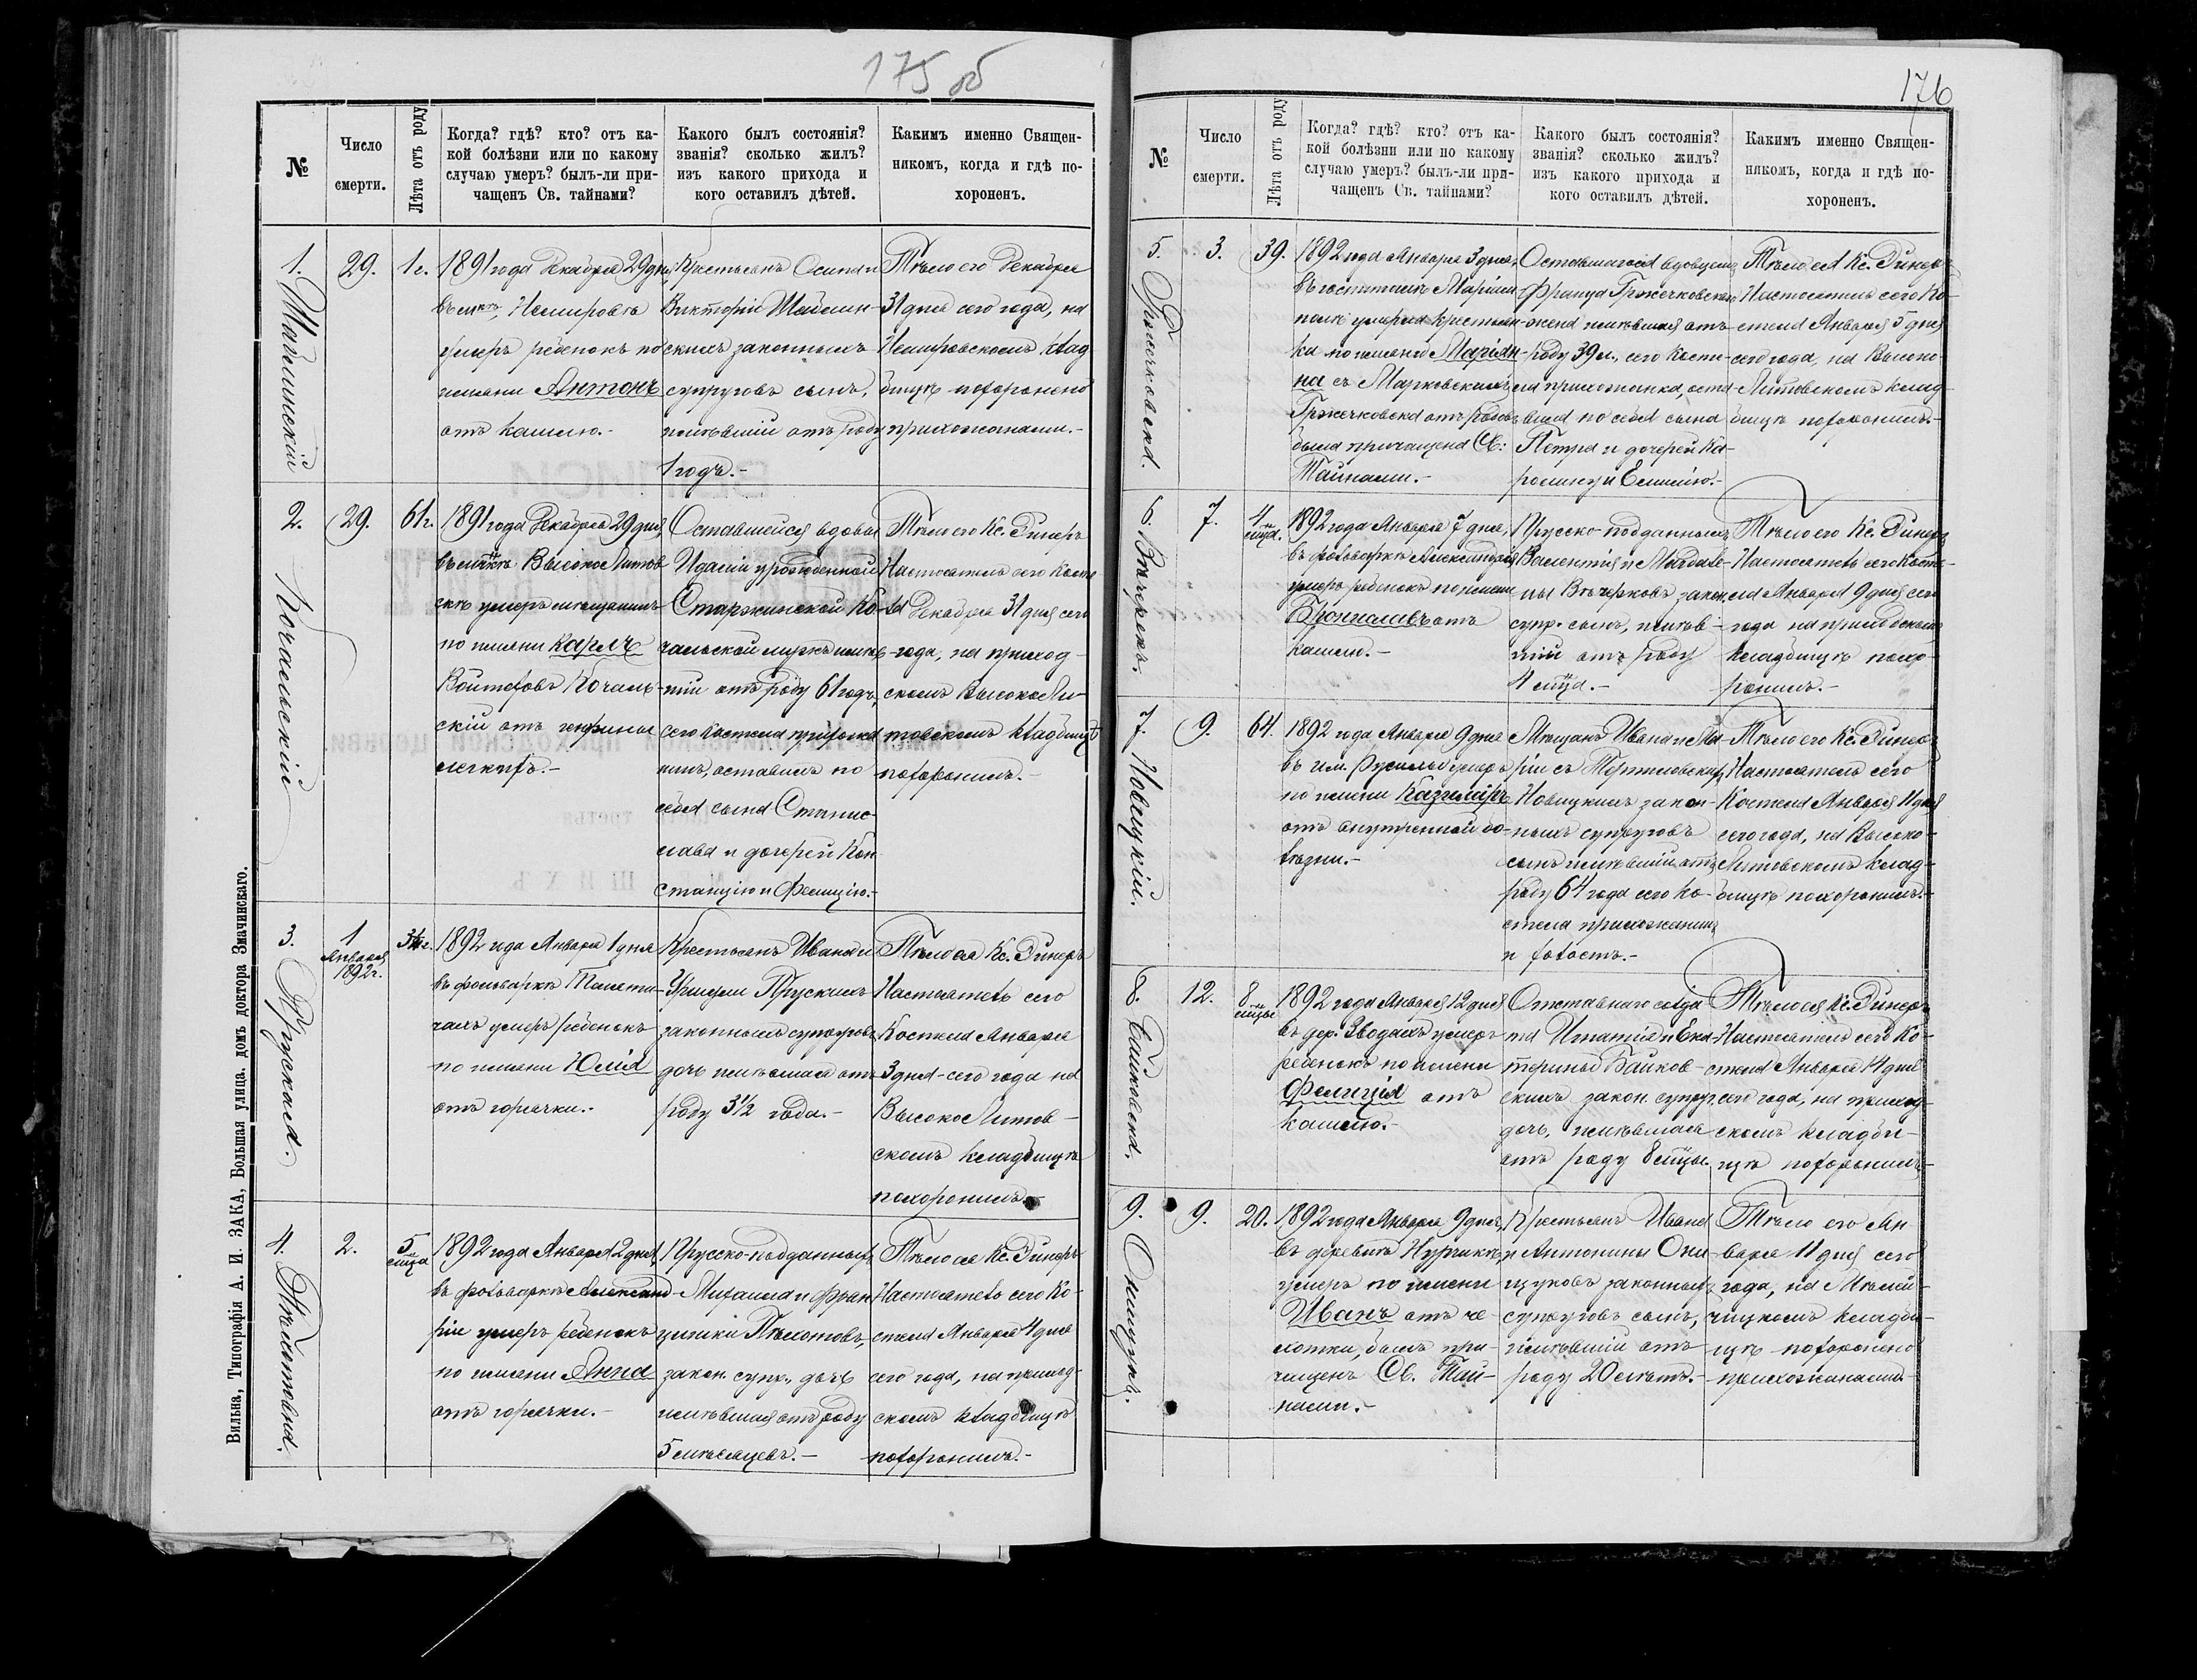 175 об
№
Число
смерти.
Лѣта отъ роду
Когда? гдѣ? кто? отъ ка-
кой болѣзни или по какому
случаю умеръ? былъ-ли при-
чащенъ Св. тайнами?
Какого былъ состоянія?
званія? сколько жилъ?
изъ какого прихода и
кого оставилъ дѣтей.
Какимъ именно Священ-
никомъ, когда и гдѣ по-
хороненъ.
1.
29.
1 г.
1891 года Декабря 29 дня,
Немировѣ
умеръ ребенокъ по
имени Антонъ
отъ кашлю.-
Крестьянъ Осипа и
Викторіи
скихъ законныхъ
супруговъ сынъ,
имѣвшій отъ роду
1 годъ.-
Тѣло его Декабря
31 дня сего года, на
Немировскомъ клад
бищѣ похоронено
прихожанами.-
2.
Кочальскій
29.
61 г.
1891 года Декабря 29 дня,
въ Высоко Литов
скѣ умеръ мѣщанинъ
по имени Карлъ
Войтеховъ Кочаль-
скій отъ
легкихъ.-
Оставшейся вдовы
урожденной
Старжинской Ко-
чальской мужъ имѣв-
шій отъ роду 61 годъ,
сего костела прихожа
нинъ, оставилъ по
себѣ сына Станис-
лава и дочерей Кон-
станцію и Фелицію.-
Тѣло его Кс. Гинеръ
Настоятель сего Косте
ла Декабря 31 дня сего
года, на приход-
скомъ Высоко Ли-
товскомъ кладбищѣ
похоронилъ.-
3.
Пруская.
1
Января
1892 г.
3½ г.
1892 года Января 1 дня
въ фольваркѣ
чахъ умеръ ребенокъ
по имени Юлія
отъ горячки.-
Крестьянъ Ивана и
Уршули Прускихъ
законныхъ супруговъ
дочь имѣвшая отъ
роду 3½ года.-
Тѣло ея Кс. Гинеръ
Настоятель сего
Костела Января
3 дня сего года на
Высоко Литов-
скомъ кладбищѣ
похоронилъ.-
4.
2.
5
м-ца
1892 года Января 2 дня,
въ фольваркѣ Александ-
ріи умеръ ребенокъ
по имени Анна
отъ горячки.-
Прусско-подданныхъ
Михаила и Фран
цишки
закон. супр. дочь
имѣвшая отъ роду
5 мѣсяцевъ.-
Тѣло ея Кс. Гинеръ
Настоятель сего Ко-
стела Января 4 дня
сего года, на приход-
скомъ кладбищѣ
похоронилъ.-
Вильна, Типографія А. И. ЗАКА, Большая улица. домъ доктора Змачинскаго.
176
№
Число
смерти.
Лѣта отъ роду
Когда? гдѣ? кто? отъ ка-
кой болѣзни или по какому
случаю умеръ? былъ-ли при-
чащенъ Св. тайнами?
Какого былъ состоянія?
званія? сколько жилъ?
изъ какого прихода и
кого оставилъ дѣтей.
Какимъ именно Священ-
никомъ, когда и гдѣ по-
хороненъ.
5.
Гржечковска.
3.
39.
1892 года Января 3 дня,
въ госпиталѣ
умерла крестьян-
ка по имени Маріан-
на съ Марковскихъ
Гржечковска отъ родовъ
была причащена Св:
Тайнами.-
Оставшагося вдовцемъ
Франца Гржечковскаго
жена имѣвшая отъ
роду 39 л., сего косте-
ла прихожанка, оста-
вила по себѣ сына
Петра и дочерей Ка-
ролину и Емилію.-
Тѣло ея Кс. Гинеръ
Настоятель сего Ко-
стела Января 5 дня
сего года, на Высоко-
Литовскомъ клад-
бищѣ похоронилъ.-
6.
Вѣчерекъ.
7.
4
м-ца.
1892 года Января 7 дня,
въ фольваркѣ Александріи
умеръ ребенокъ по имени
Брониславъ отъ
кашлю.-
Прусско-подданныхъ
Валентія и Магдале-
ны Вѣчерковъ закон.
супр. сынъ, имѣв-
шій отъ роду
4 м-ца.-
Тѣло его Кс. Гинеръ
Настоятель сего Косте-
ла Января 9 дня сего
года на приходскомъ
кладбищѣ похо-
ронилъ.-
7.
Новицкій.
9.
64.
1892 года Января 9 дня
въ им. умеръ
по имени Казиміръ
отъ внутренней бо-
лѣзни.-
Мѣщанъ Ивана и Ма-
ріи съ
Новицкихъ закон-
ныхъ супруговъ
сынъ имѣвшій отъ
роду 64 года сего Ко-
стела прихожанинъ
и холостъ.-
Тѣло его Кс. Гинеръ
Настоятель сего
Костела Января 11 дня
сего года, на Высоко-
Литовскомъ клад-
бищѣ похоронилъ.-
8.
Байковска.
12.
8
м-цы
1892 года Января 12 дня
въ дер. Зводахъ умеръ
ребенокъ по имени
Фелиція отъ
кашлю.-
Отставнаго солда
та Игнатія и Ека-
терины Байков-
скихъ закон. супруг.
дочь, имѣвшая
отъ роду 8 м-цы.
Тѣло ея Кс. Гинеръ
Настоятель сего Ко-
стела Января 14 дня
сего года, на приход-
скомъ кладби-
щѣ похоронилъ.-
9.
Онищукъ.
9.
20.
1892 года Января 9 дня,
въ деревнѣ
умеръ по имени
Иванъ отъ че-
хотки, былъ при-
чащенъ Св. Тай-
нами.-
Крестьянъ Ивана
и Антонины Они-
щуковъ законныхъ
супруговъ сынъ,
имѣвшій отъ
роду 20 лѣтъ.-
Тѣло его Ян-
варя 11 дня сего
года, на
кладби-
щѣ похоронено
прихожанами.-